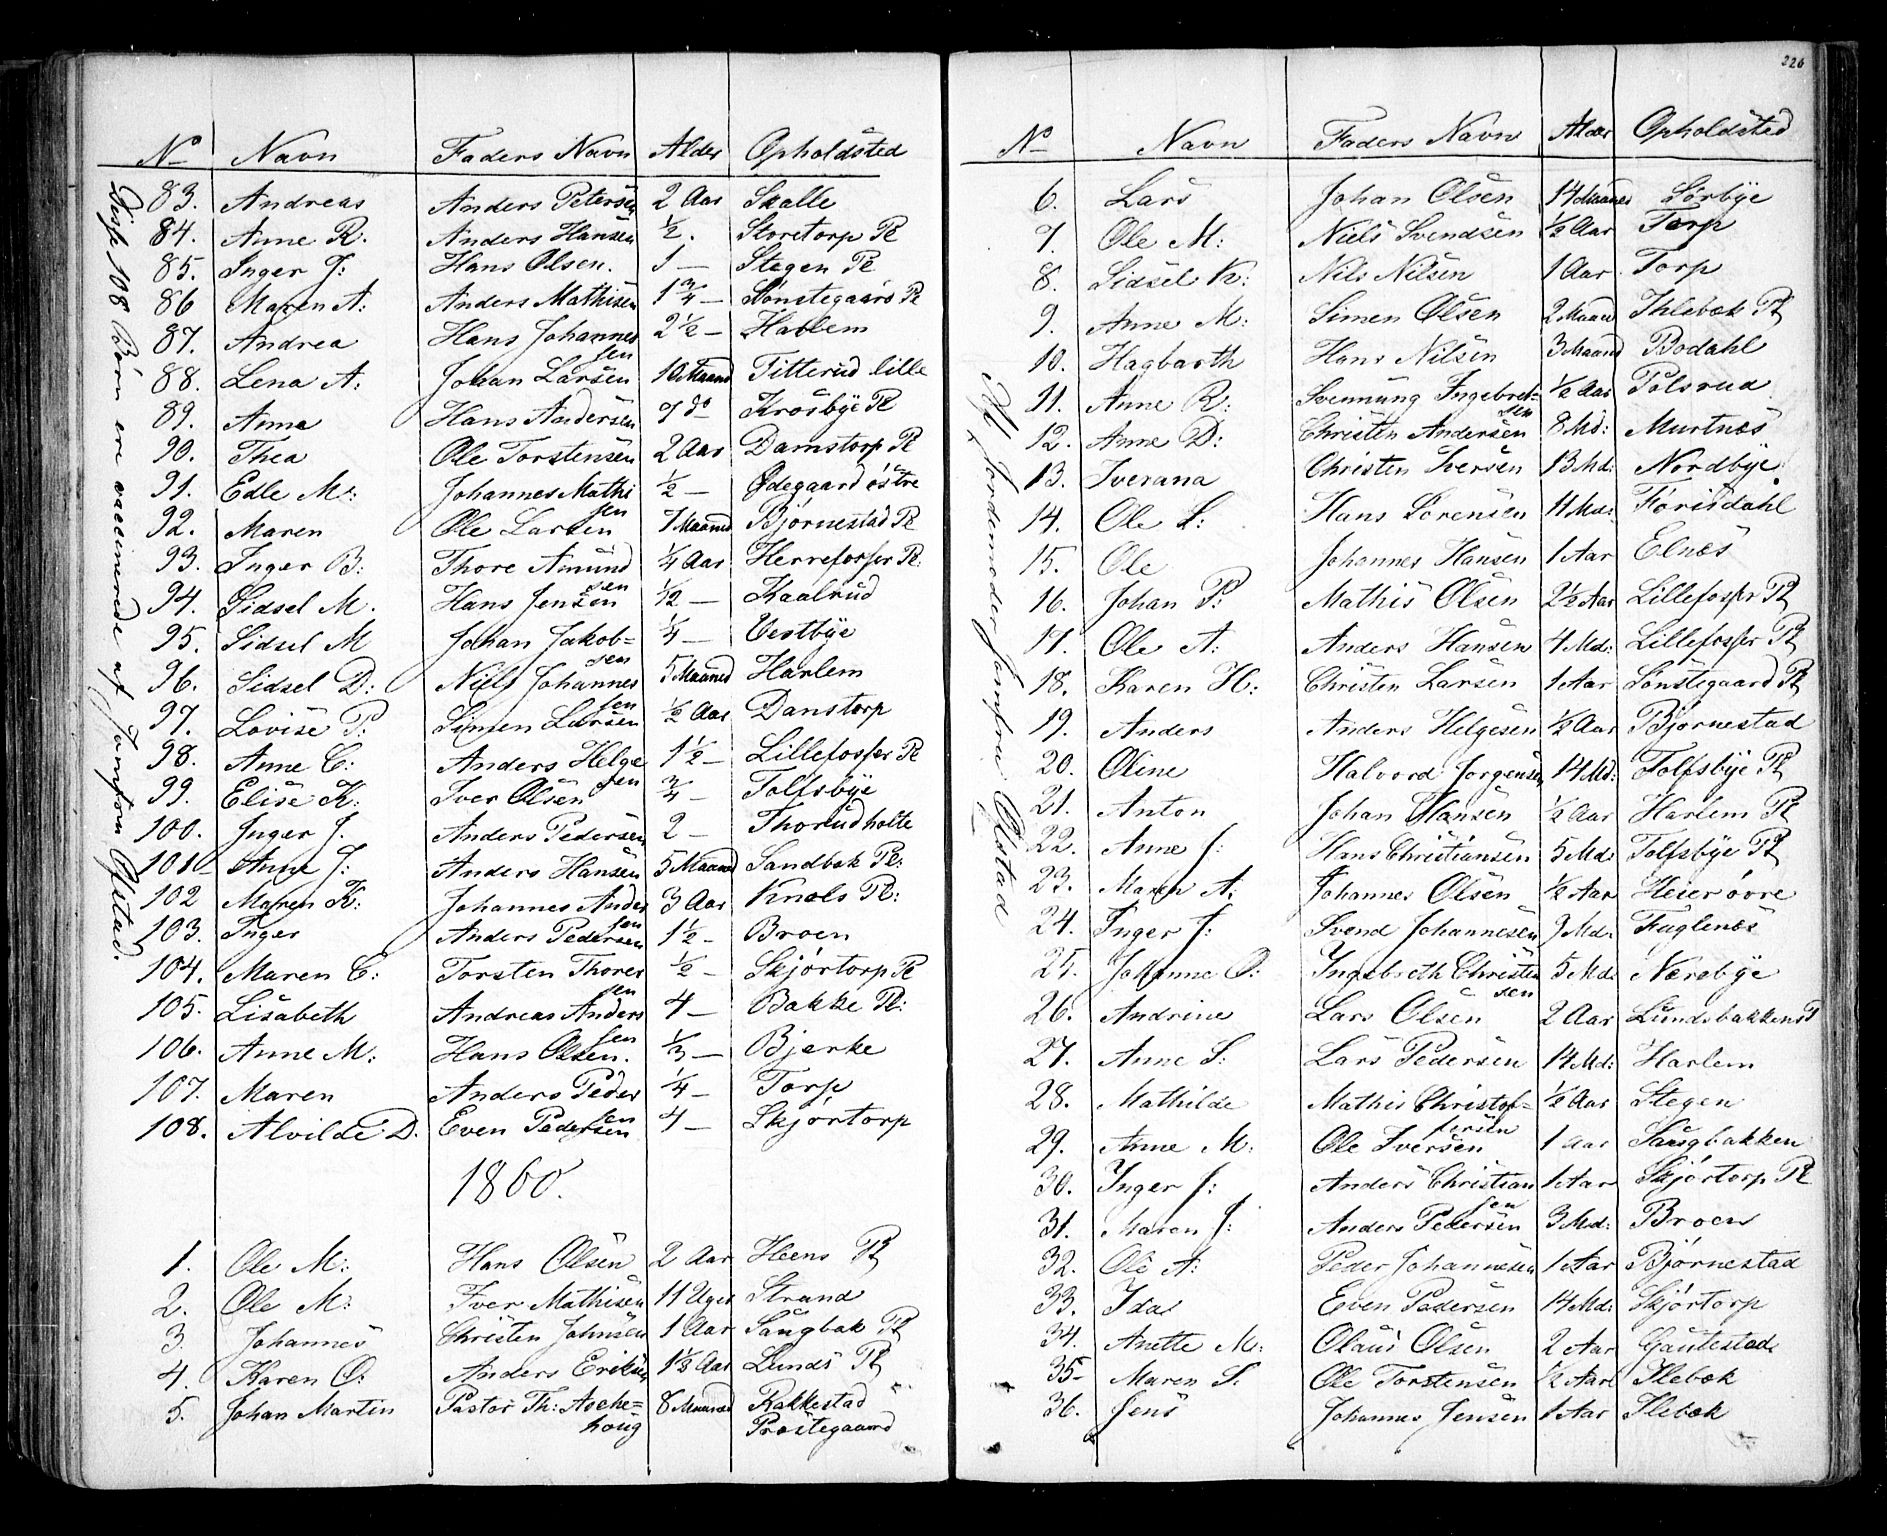 No Navn Faders Navn Alder Opholdsted
83. Andreas Anders Petersen 2 Aar Skalle
84. Anne R. Anders Hansen ½. Storetorp Pl
85. Inger J: Hans Olsen. 1 — Stegen Pl
86 Maren A: Anders Mathisen 1¾ — Sønstegaard Pl
87. Andrea Hans Johannes 2½ — Harlem
sen
88. Lena A: Johan Larsen 10 Maaned Titterud lille
89. Anna Hans Andersen 7 do Krosbye Pl
90. Thea Ole Torstensen 2 Aar Damstorp Pl
91. Edle M: Johannes Mathi ½ — Ødegaard østre
sen
92. Maren Ole Larsen 7 Maaned Bjørnestad Pl
93. Inger B: Thore Amund ¼ Aar Herrefosser Pl:
sen
94. Sidsel M. Hans Jensen ½ — Kaalrud
95. Sidsel M Johan Jakob= ¼ — Vestbye
sen
96. Sidsel D: Niels Johannes 5 Maaned Harlem
sen
97. Lovise P: Simen Larsen ½ Aar Danstorp
98. Anne C: Anders Helge 1½ — Lillefosser Pl
sen
99. Elise K: Iver Olsen ¾ — Tolfsbye
100. Inger J. Anders Pedersen 2 — Thorudholte
101 Anne J: Anders Hansen 5 Maaned Sandbek Pl:
102 Maren K: Johannes Ander 3 Aar Knols Pl:
sen
103. Inger Anders Pedersen 1½ — Broen
104. Maren C: Torsten Thores ½ — Skjørtorp Pl
sen
105. Lisabeth Andreas Anders 4 — Bakke Pl:
sen
106. Anne M: Hans Olsen. ⅓ — Bjerke
107. Maren Anders Peder ¼ — Torp
sen
108. Alvilde D. Even Pedersen 4 — Skjørtorp
Disse 108 Børn ere vaccinerede af Jomfru Ofstad.
1860.
1. Ole M: Hans Olsen 2 Aar Heens Pl
2. Ole M: Iver Mathisen 11 Uger Strand
3. Johannes Christen Johnsen 1 Aar Sangbak Pl
4. Karen O: Anders Eriksen 1⅓ Aar Lunds Pl
5. Johan Martin Pastor Th: Asche= 8 Maaned Rakkestad
houg Præstegaard
226
No Navn Faders Navn Alder Opholdsted
6. Lars Johan Olsen 14 Maaned Sørbye
7. Ole M: Niels Svendsen ½ Aar Torp
8. Sidsel K: Nils Nilsen 1 Aar Torp
9. Anne M: Simen Olsen 2 Maaned Ihlebek Pl
10. Hagbarth Hans Nilsen 3 Maaned Bodahl
11. Anne R: Svennung Ingebret- ½ Aar Tolsrud
sen
12. Anne D: Christen Andersen 8 Md: Murtnes
13. Iverana Christen Iversen 13 Md: Nordbye
14. Ole L: Hans Sørensen 11 Md: Førisdahl
15. Ole Johannes Hansen 1 Aar Elnes
16. Johan P: Mathis Olsen 2½ Aar Lillefosser Pl
17. Ole A: Anders Hansen 4 Md: Lillefosser Pl
18. Karen H: Christen Larsen 1 Aar Sønstegaard Pl
19. Anders Anders Helgesen ½ Aar Bjørnestad
20. Oline Halvord Jørgensen 14 Md: Tolfsbye Pl
21. Anton Johan Hansen ½ Aar Harlem Pl
22. Anne J: Hans Christiansen 5 Md: Tolfsbye Pl
23. Maren A: Johannes Olsen ½ Aar Heier øvre
24. Inger J: Svend Johannesen 9 Md: Fuglenes
25. Johanne O: Ingebreth Christen 5 Md: Nærebye
sen
26. Andrine Lars Olsen 2 Aar Lundsbakken Pl
27. Anne S: Lars Pedersen 14 Md: Harlem
28. Mathilde Mathis Christof= ½ Aar Stegen
fersen
29. Anne M: Ole Iversen 1 aar Sangbakken
30. Inger J: Anders Christian 1 Aar Skjørtorp Pl
sen
31. Maren J: Anders Pedersen 3 Md: Broen
32. Ole A: Peder Johannesen 1 Aar Bjørnestad
33. Ida Even Pedersen 14 Md: Skjørtorp
34. Anette M: Olaus Olsen 2 Aar Gautestad
35 Maren S. Ole Torstensen ½ Aar Ilebek
36. Jens Johannes Jensen 1 Aar Ilebek
Af Jordemoder Jomfru Ofstad